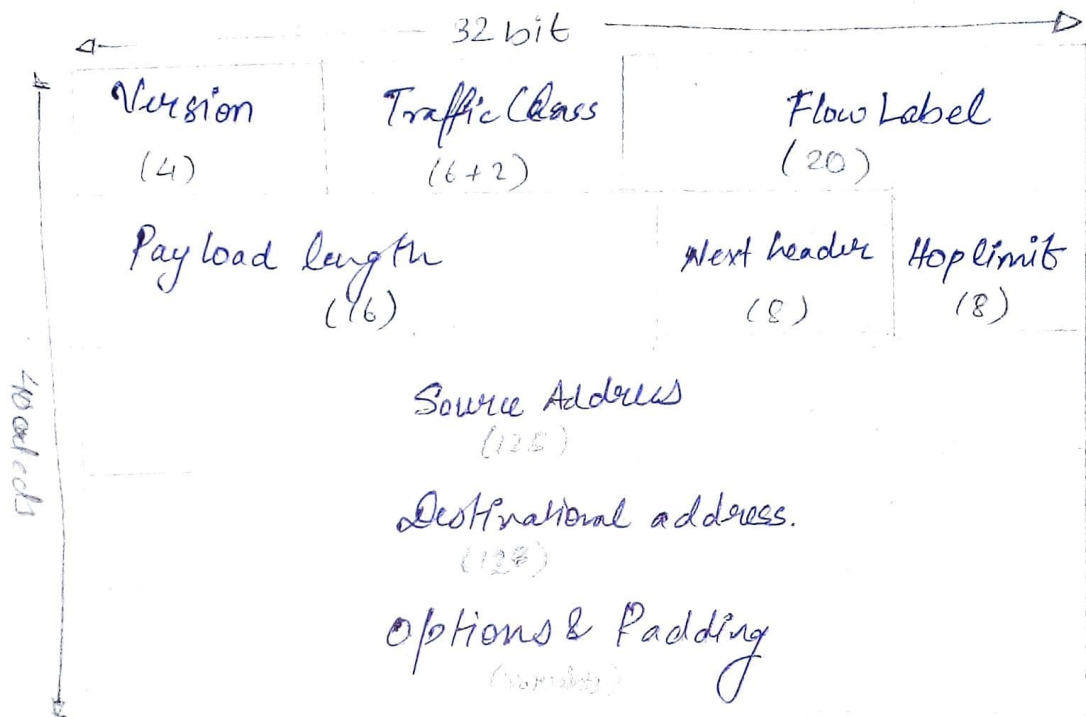 32 bit
Version Traffic Class Flow Label
(4) (6+2) (20)
Payload length Next header Hop limit
(16) (8) (8)
Source Address
(128)
Destinational address.
(128)
Options & Padding
(variable)
40 octects